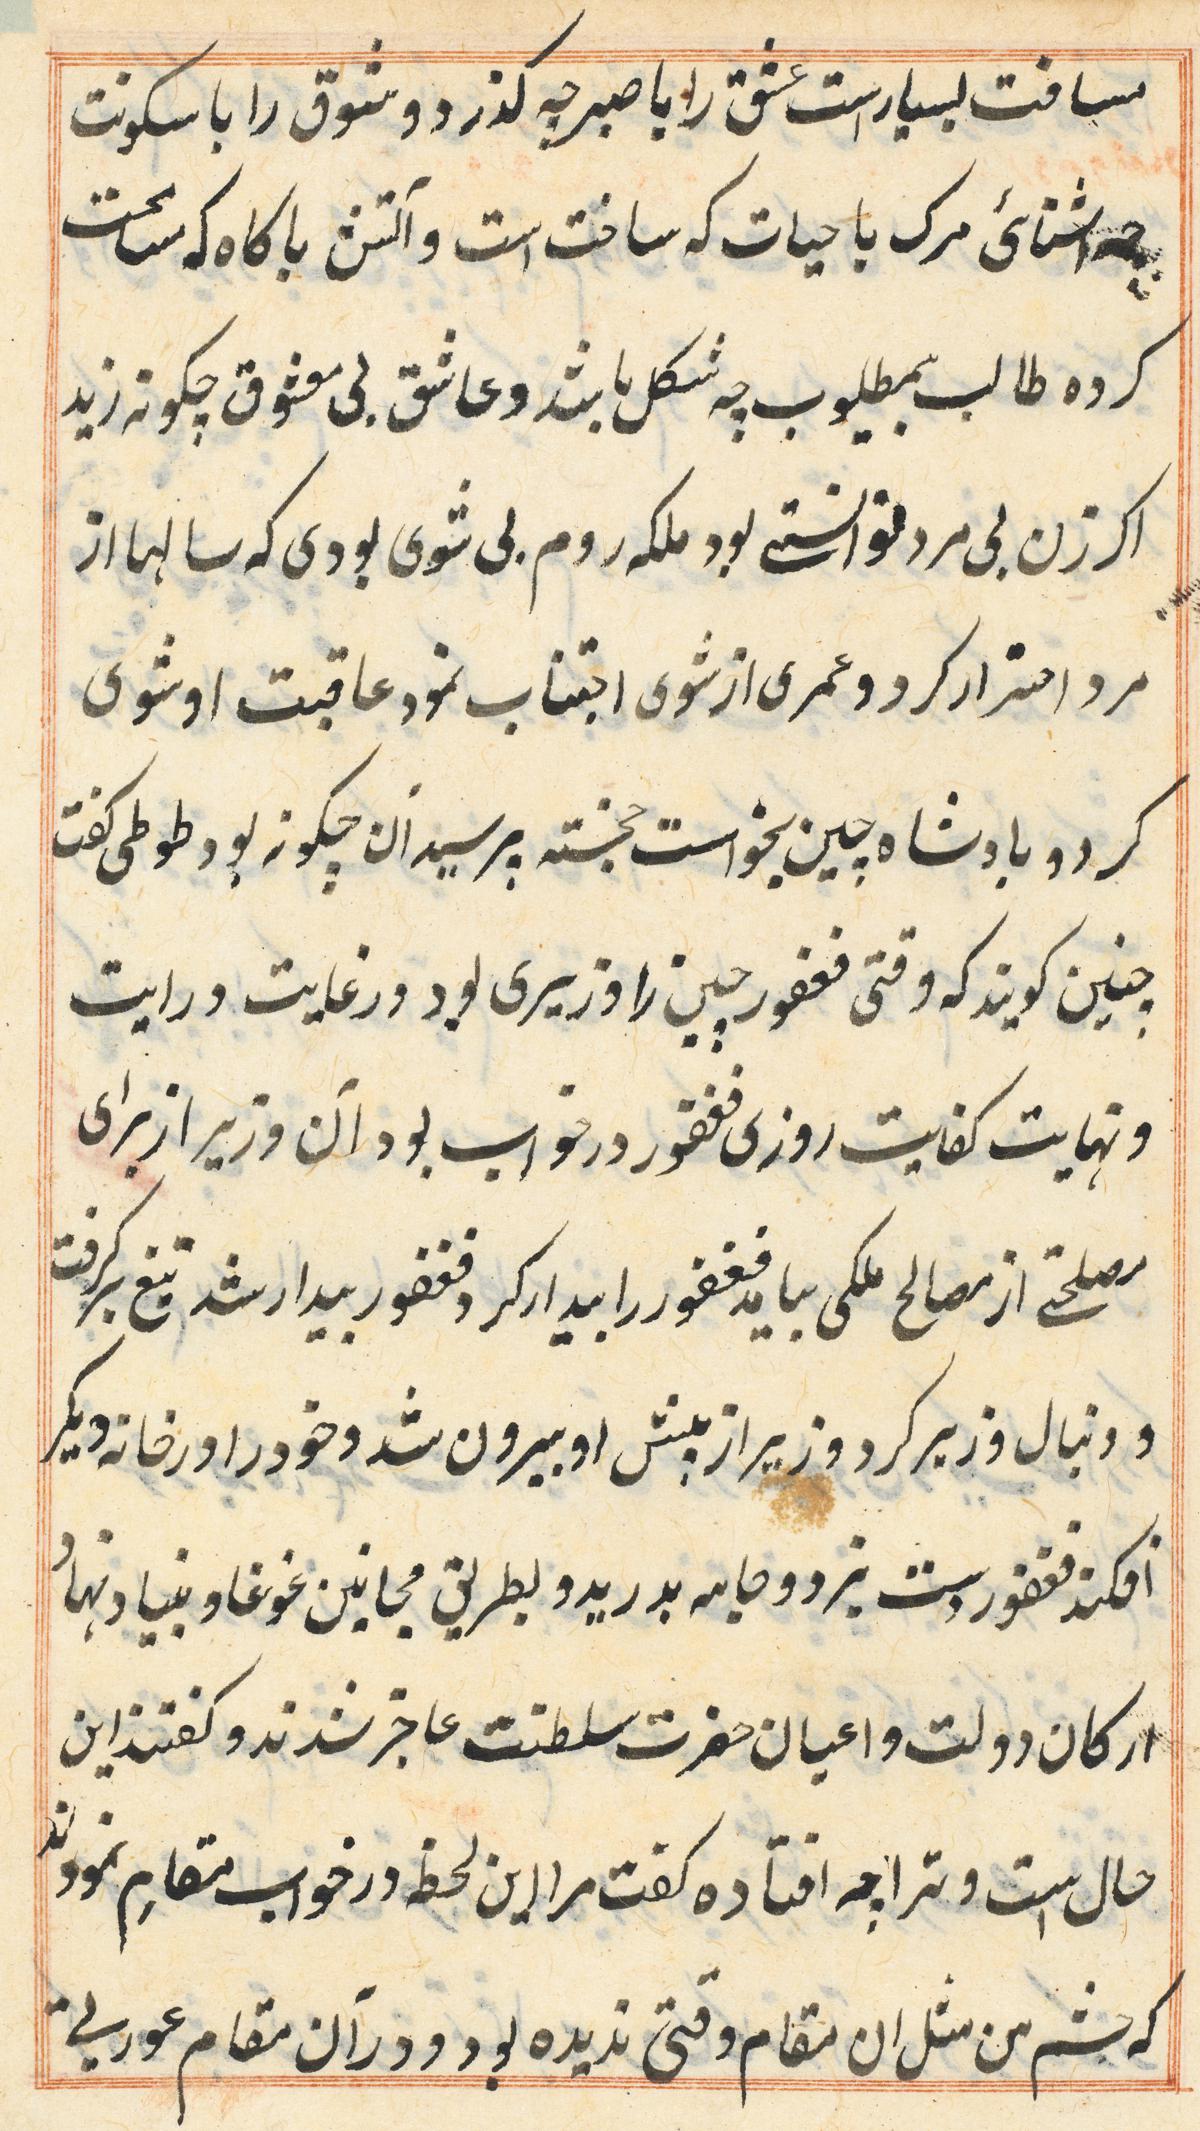 مسافت بسیار است عشق را با صبر چه کذر و شوق را با سکونت
چه اشنائ مرک با حیات که ساخت است و آتش با کاه که ساخت
کرده طالب بمطلوب چه شکل باشد و عاشق بی معشوق چکونه زید
اکر زن بی مرد توانستی بود ملکه روم بی شوی بودی که سالها از
مرد احتراز کرد و عمری از شوی اجتناب نمود عاقبت او شوی
کرد و بادشاه چین بخواست خجسته پرسید آن چکونه بود طوطی کفت
چنین کویند که وقتی فغفور چین را وزیری بود در غایت درایت
و نهایت کفایت روزی فغفور در خواب بود آن وزیر از برای
مصلحتی از مصالح ملکی بیامد فغفور را بیدار کرد فغفور بیدار شد تیغ برکرفت
و دنبال وزیر کرد وزیر از پیش او بیرون شد و خود را در خانه دیکر
افکند فغفور دست بزد و جامه بدرید و بطریق مجانین غوغا و بنیاد نهاد
ارکان دولت و اعیان حضرت سلطنت عاجز شدند و کفتند این
حال است و ترا چه افتاده کفت مرا این لحظه در خواب مقام نمودند
که چشم من مثل ان مقام وقتی ندیده بود و در آن مقام عورتی